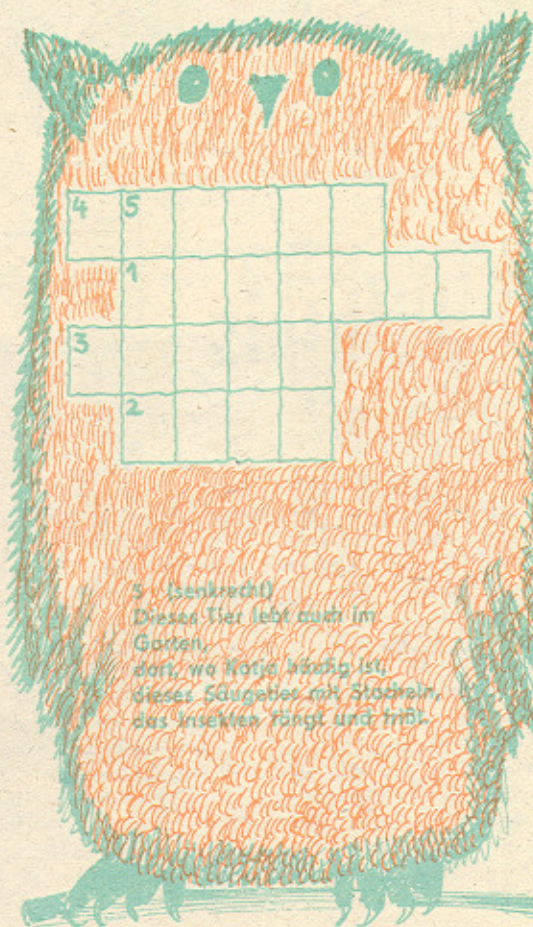 4 5
1
3
2
5 (senkrecht)
Dieses Tier lebt auch im
Garten,
dort, wo Katja häufig ist,
dieses Säugetier mit Stacheln,
das Insekten fängt und frißt.